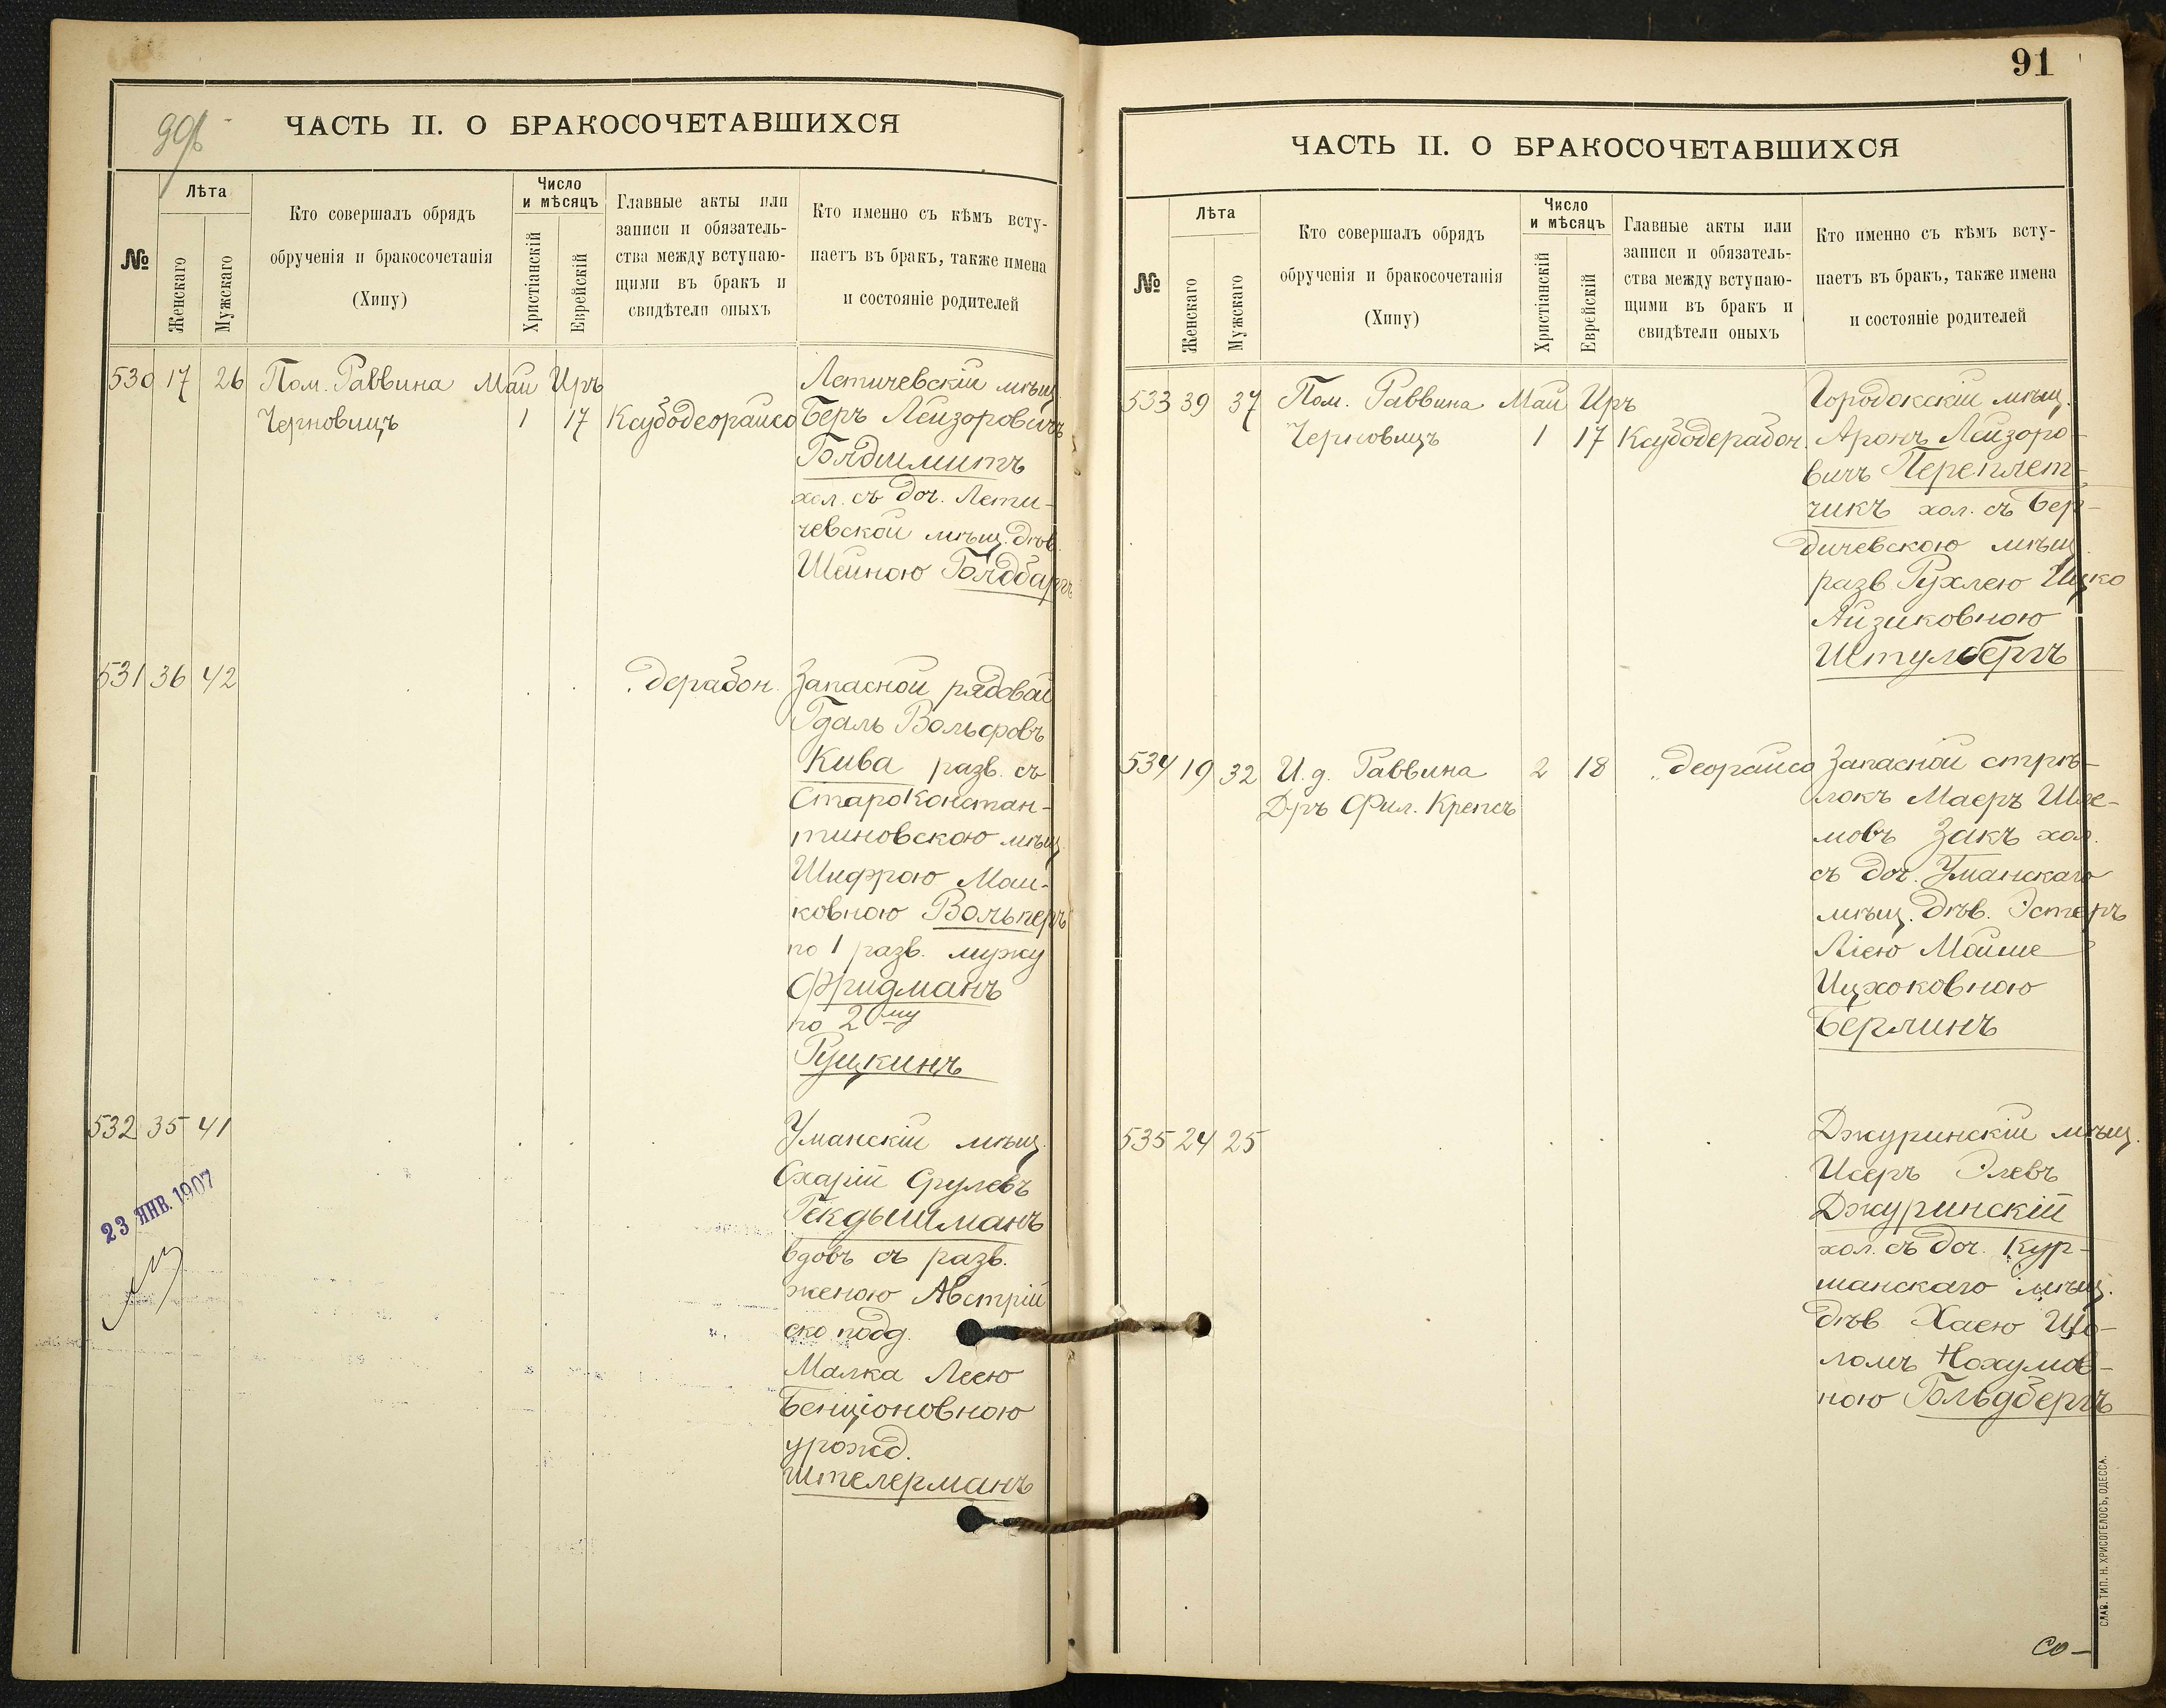 90б
ЧАСТЬ II. О БРАКОСОЧЕТАВШИХСЯ
№
Лѣта
Женскаго
Мужскаго
Кто совершалъ обрядъ
обрученія и бракосочетанія
(Хипу)
Число
и мѣсяцъ
Христіанскій
Еврейскій
Главные акты или
записи и обязатель-
ства между вступаю-
щими въ бракъ и
свидѣтели оныхъ
Кто именно съ кѣмъ всту-
паетъ въ бракъ, также имена
и состояніе родителей
530 17 26 Пом. Раввина Май Иръ Летичевскій мѣщ.
Черновицъ 1 17 Ксубодеорайсо Беръ Лейзоровичъ
Гольдшмитъ
хол. съ доч. Лети-
чевской мѣщ. дѣв.
Шейною Гольдбаргъ
531 36 42 . . . . дерабон. Запасной рядовой
Гдаль Вольфовъ
Кива разв. съ
Староконстан-
тиновскою мѣщ.
Шифрою Мош-
ковною Вольперъ
по 1 разв. мужу
Фридманъ
по 2му
Руцкинъ
532 35 41 . . . . Уманскій мѣщ.
Схарій Срулевъ
Гекдышманъ
вдовъ съ разв.
женою Австрій
ско подд.
Малка Леею
Бенціоновною
урожд.
Штелерманъ
23 ЯНВ. 1907
91
ЧАСТЬ II. О БРАКОСОЧЕТАВШИХСЯ
№
Лѣта
Женскаго
Мужскаго
Кто совершалъ обрядъ
обрученія и бракосочетанія
(Хипу)
Число
и мѣсяцъ
Христіанскій
Еврейскій
Главные акты или
записи и обязатель-
ства между вступаю-
щими въ бракъ и
свидѣтели оныхъ
Кто именно съ кѣмъ всту-
паетъ въ бракъ, также имена
и состояніе родителей
533 39 37 Пом. Раввина Май Иръ Городокскій мѣщ.
Черновицъ 1 17 Ксубодерабон. Аронъ Лейзоро-
вичъ Переплет-
чикъ хол. съ Бер-
дичевскою мѣщ.
разв. Рухлею Ицко
Айзиковною
Штульбергъ
534 19 32 И. д. Раввина 2 18 „ деорайсо Запасной стрѣ-
Д-ръ Фил. Крепсъ локъ Маеръ Шле-
мовъ Закъ хол.
съ доч. Уманскаго
мѣщ. дѣв. Эстеръ
Ліею Мойше
Ицхоковною
Берлинъ
535 24 25 . . . Джуринскій мѣщ.
Исеръ Элевъ
Джуринскій
хол. съ доч. Кур-
манскаго мѣщ.
дѣв Хаею Шо-
ломъ Нохумов-
ною Гольдбергъ
СЛАВ. ТИП. Н. ХРИСОГЕЛОСЪ, ОДЕССА.
Сю-